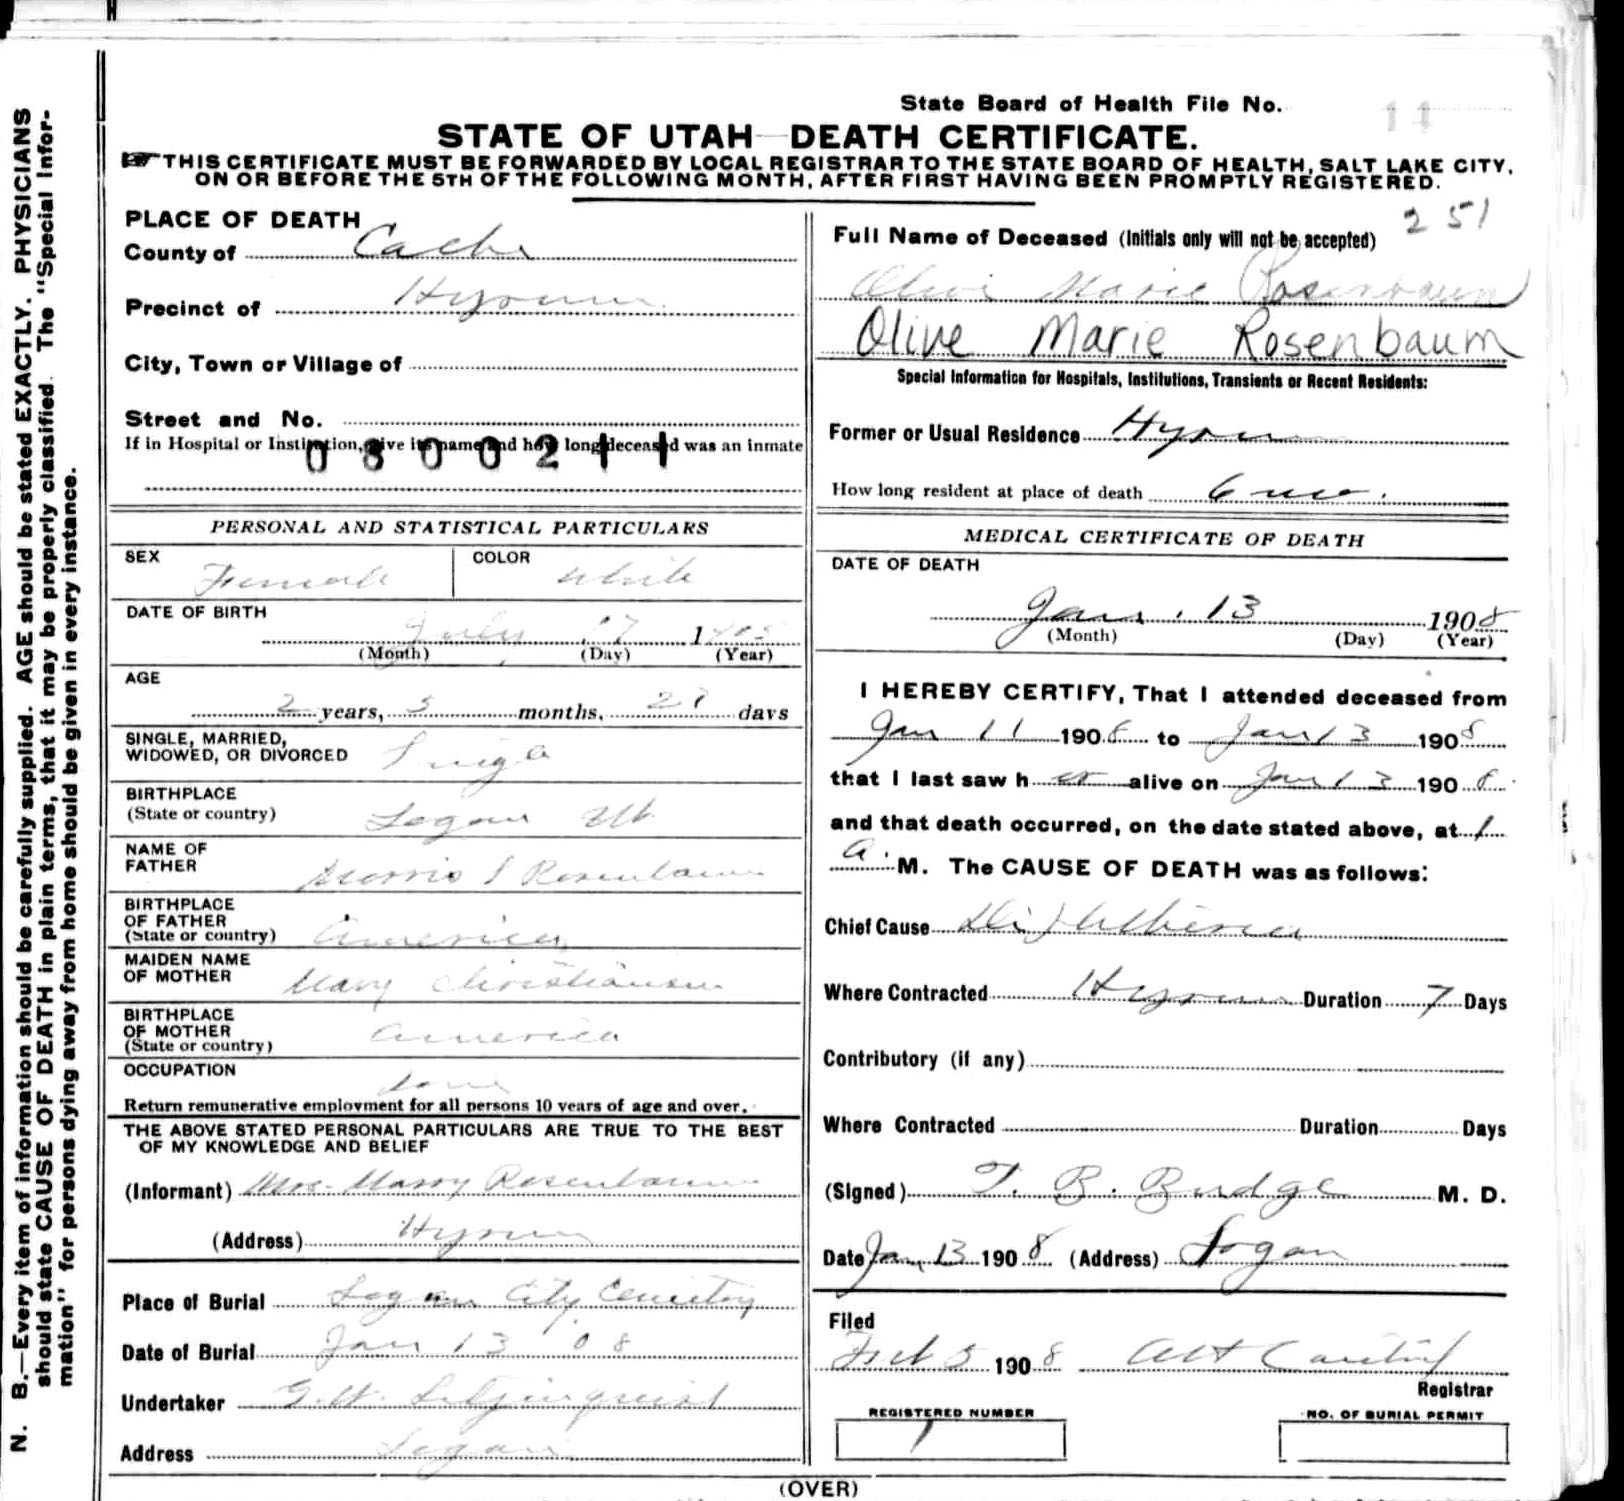 State Board of Health File No. 11
STATE OF UTAH—DEATH CERTIFICATE.
THIS CERTIFICATE MUST BE FORWARDED BY LOCAL REGISTRAR TO THE STATE BOARD OF HEALTH, SALT LAKE CITY,
ON OR BEFORE THE 5TH OF THE FOLLOWING MONTH, AFTER FIRST HAVING BEEN PROMPTLY REGISTERED.
N. B.—Every item of information should be carefully supplied. AGE should be stated EXACTLY. PHYSICIANS
should state CAUSE OF DEATH in plain terms, that it may be properly classified. The "Special Infor-
mation" for persons dying away from home should be given in every instance.
PLACE OF DEATH
County of Cache
Precinct of Hyrum
City, Town or Village of
Street and No.
If in Hospital or Institution, give its name and how long deceased was an inmate
0800211
PERSONAL AND STATISTICAL PARTICULARS
SEX Female COLOR White
DATE OF BIRTH
July 17 1905
(Month) (Day) (Year)
AGE
2 years, 5 months, 27 days
SINGLE, MARRIED,
WIDOWED, OR DIVORCED Single
BIRTHPLACE
(State or country) Logan Ut
NAME OF
FATHER Morris Rosenbaum
BIRTHPLACE
OF FATHER
(State or country) America
MAIDEN NAME
OF MOTHER Mary Christiansen
BIRTHPLACE
OF MOTHER
(State or country) America
OCCUPATION
Return remunerative employment for all persons 10 years of age and over.
THE ABOVE STATED PERSONAL PARTICULARS ARE TRUE TO THE BEST
OF MY KNOWLEDGE AND BELIEF
(Informant) Mrs. Mary Rosenbaum
(Address) Hyrum
Place of Burial Logan City Cemetery
Date of Burial Jan 13 08
Undertaker
Address Logan
251
Full Name of Deceased (Initials only will not be accepted)
Olive Marie Rosenbaum
Olive Marie Rosenbaum
Special Information for Hospitals, Institutions, Transients or Recent Residents:
Former or Usual Residence Hyrum
How long resident at place of death 6 mo.
MEDICAL CERTIFICATE OF DEATH
DATE OF DEATH
Jan. 13 1908
(Month) (Day) (Year)
I HEREBY CERTIFY, That I attended deceased from
Jan 11 1908 to Jan 13 1908
that I last saw her alive on Jan 13 1908
and that death occurred, on the date stated above, at 1
a. M. The CAUSE OF DEATH was as follows:
Chief Cause Diphtheria
Where Contracted Hyrum Duration 7 Days
Contributory (if any)
Where Contracted Duration Days
(Signed) T. B. Budge M. D.
Date Jan 13 1908 (Address) Logan
Filed
Feb 5 1908
Registrar
REGISTERED NUMBER
1
NO. OF BURIAL PERMIT
(OVER)